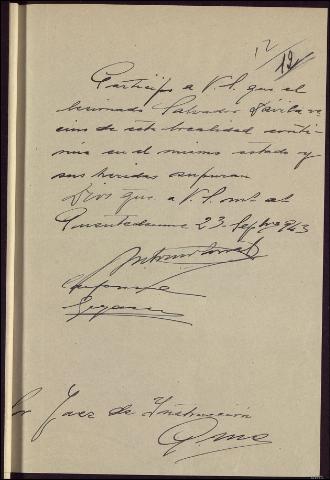 12
19
Participo a V.S. que el
lesionado Salvador Dávila ve
cino de esta localidad conti
núa en el mismo estado y
sus heridas supuran
Dios gue. a V.S. m. a.
Puentedeume 23 Sepbre 943
Antonio
Sr Juez de Instrucción